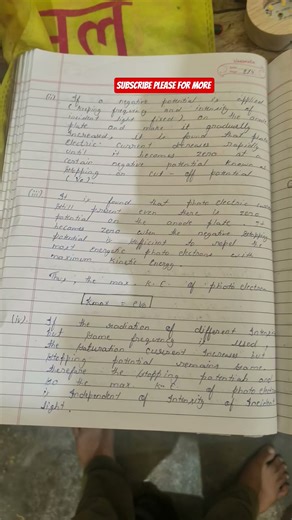 नल
SUBSCRIBE PLEASE FOR MORE
(ii) If a negative potential is applied
(keeping frequency and intensity of the
incident light fixed) on the anode
plate and make it gradually
increased, it is found that photo
electric current decreases rapidly
until it becomes zero at a
certain negative potential known
stopping or cut off potential
(iii) It is found that photo electric current
still present even there is zero
potential on the anode plate. It
becomes zero when the negative stopping
potential is sufficient to repel the
most energetic photo electrons with
maximum kinetic energy.
Thus, the max. K.E. of photo electron
Kmax = eV0
(iv) If the radiation of different intensity
but same frequency is used,
the saturation current increases but
stopping potential remains same,
therefore the stopping potential and
the max K.E of photo electron
is independent of intensity of incident
light.